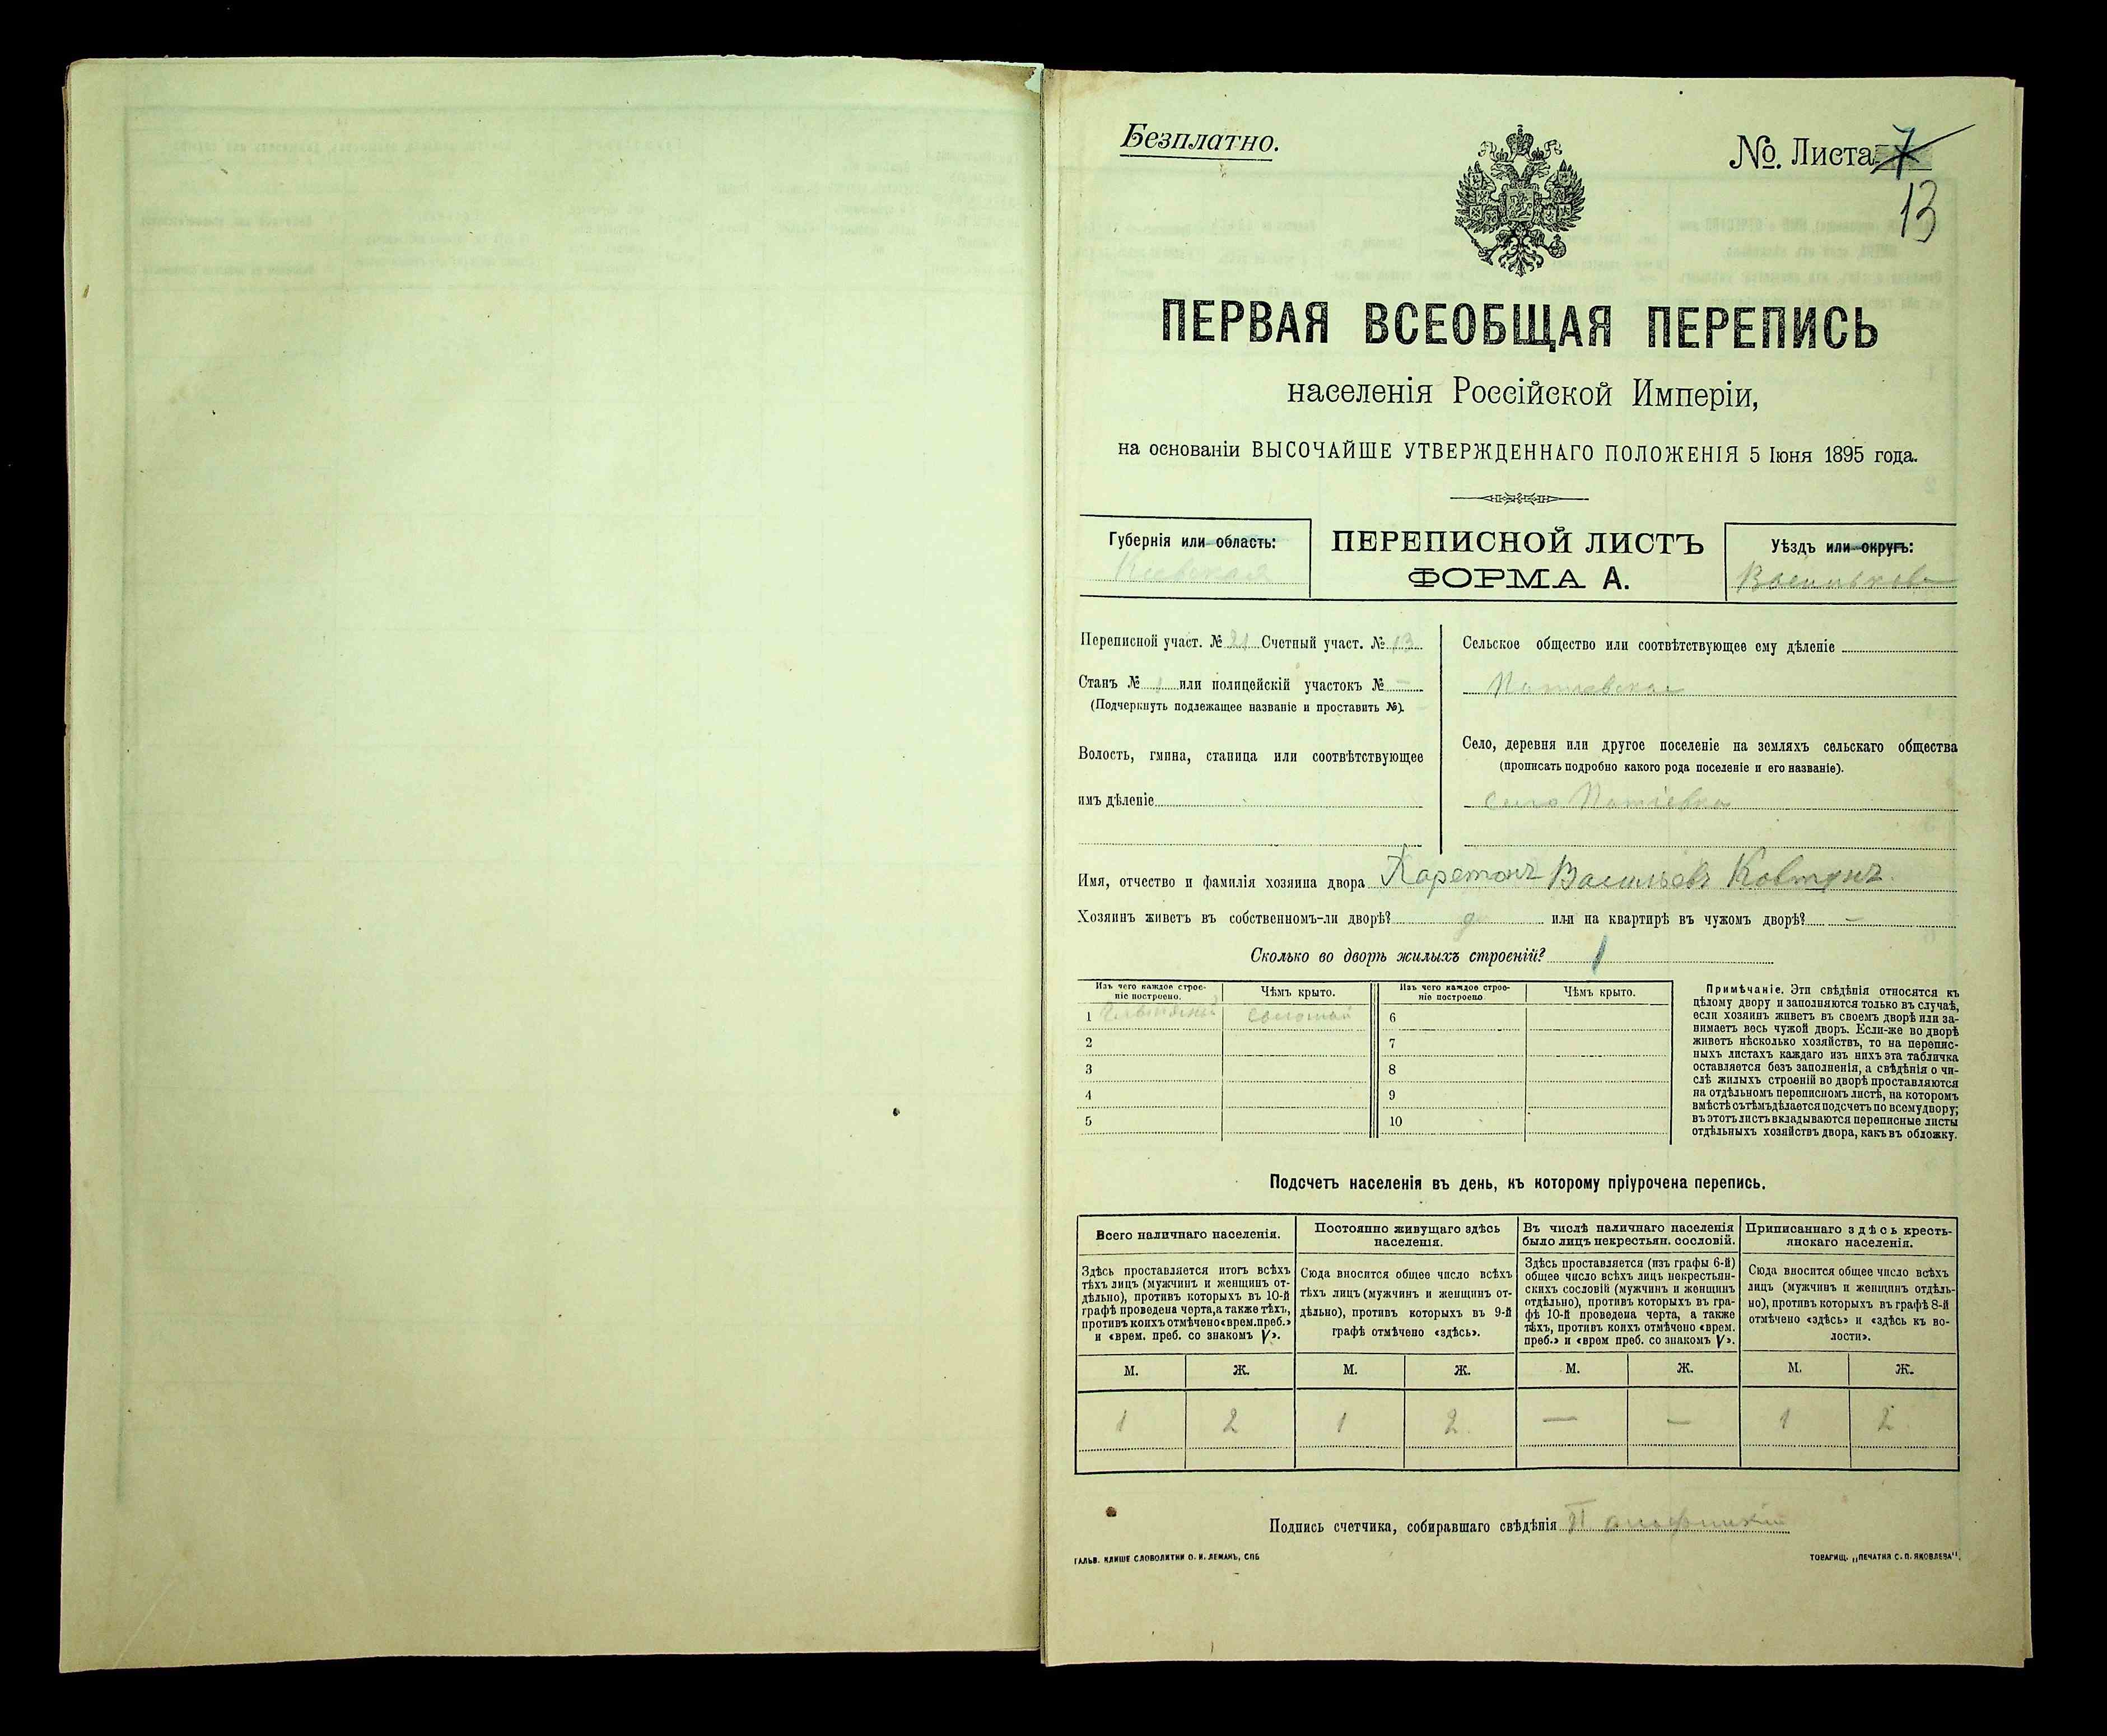 Безплатно.
№. Листа 7
13
ПЕРВАЯ ВСЕОБЩАЯ ПЕРЕПИСЬ
населенія Россійской Имперіи,
на основаніи ВЫСОЧАЙШЕ УТВЕРЖДЕННАГО ПОЛОЖЕНІЯ 5 Іюня 1895 года.
Губернія или область:
Кіевская
ПЕРЕПИСНОЙ ЛИСТЪ
ФОРМА А.
Уѣздъ или округъ:
Переписной участ. № 21 Счетный участ. № 13
Станъ № 1 или полицейскій участокъ № —
(Подчеркнуть подлежащее названіе и проставить №).
Волость, гмина, станица или соотвѣтствующее
имъ дѣленіе
Сельское общество или соотвѣтствующее ему дѣленіе
Село, деревня или другое поселеніе на земляхъ сельскаго общества
(прописать подробно какого рода поселеніе и его названіе).
село
Имя, отчество и фамилія хозяина двора Харетонъ Васильевъ Ковтунъ.
Хозяинъ живетъ въ собственномъ-ли дворѣ? или на квартирѣ въ чужомъ дворѣ? —
Сколько во дворѣ жилыхъ строеній? 1
Изъ чего каждое строе-
ніе построено.
Чѣмъ крыто.
Изъ чего каждое строе-
ніе построено
Чѣмъ крыто.
1 соломой 6
2 7
3 8
4 9
5 10
Примѣчаніе. Эти свѣдѣнія относятся къ
цѣлому двору и заполняются только въ случаѣ,
если хозяинъ живетъ въ своемъ дворѣ или за-
нимаетъ весь чужой дворъ. Если-же во дворѣ
живетъ нѣсколько хозяйствъ, то на перепис-
ныхъ листахъ каждаго изъ нихъ эта табличка
оставляется безъ заполненія, а свѣдѣнія о чи-
слѣ жилыхъ строеній во дворѣ проставляются
на отдѣльномъ переписномъ листѣ, на которомъ
вмѣстѣ сътѣмъ дѣлается подсчетъ по всему двору;
въ этотъ листъ вкладываются переписные листы
отдѣльныхъ хозяйствъ двора, какъ въ обложку.
Подсчетъ населенія въ день, къ которому пріурочена перепись.
Всего наличнаго населенія.
Здѣсь проставляется итогъ всѣхъ
тѣхъ лицъ (мужчинъ и женщинъ от-
дѣльно), противъ которыхъ въ 10-й
графѣ проведена черта, а также тѣхъ,
противъ коихъ отмѣчено «врем. преб.»
и «врем. преб. со знакомъ V».
Постоянно живущаго здѣсь
населенія.
Сюда вносится общее число всѣхъ
тѣхъ лицъ (мужчинъ и женщинъ от-
дѣльно), противъ которыхъ въ 9-й
графѣ отмѣчено «здѣсь».
Въ числѣ наличнаго населенія
было лицъ некрестьян. сословій.
Здѣсь проставляется (изъ графы 6-й)
общее число всѣхъ лицъ некрестьян-
скихъ сословій (мужчинъ и женщинъ
отдѣльно), противъ которыхъ въ гра-
фѣ 10-й проведена черта, а также
тѣхъ, противъ коихъ отмѣчено «врем.
преб.» и «врем преб. со знакомъ V».
Приписаннаго здѣсь кресть-
янскаго населенія.
Сюда вносится общее число всѣхъ
лицъ (мужчинъ и женщинъ отдѣль-
но), противъ которыхъ въ графѣ 8-й
отмѣчено «здѣсь» и «здѣсь къ во-
лости».
М. Ж. М. Ж. М. Ж. М. Ж.
1 2 1 2 — — 1 2
Подпись счетчика, собиравшаго свѣдѣнія
ГАЛЬВ. КЛИШЕ СЛОВОЛИТНИ О. И. ЛЕМАНЪ, СПБ
ТОВАРИЩ. „ПЕЧАТНЯ С. П. ЯКОВЛЕВА".